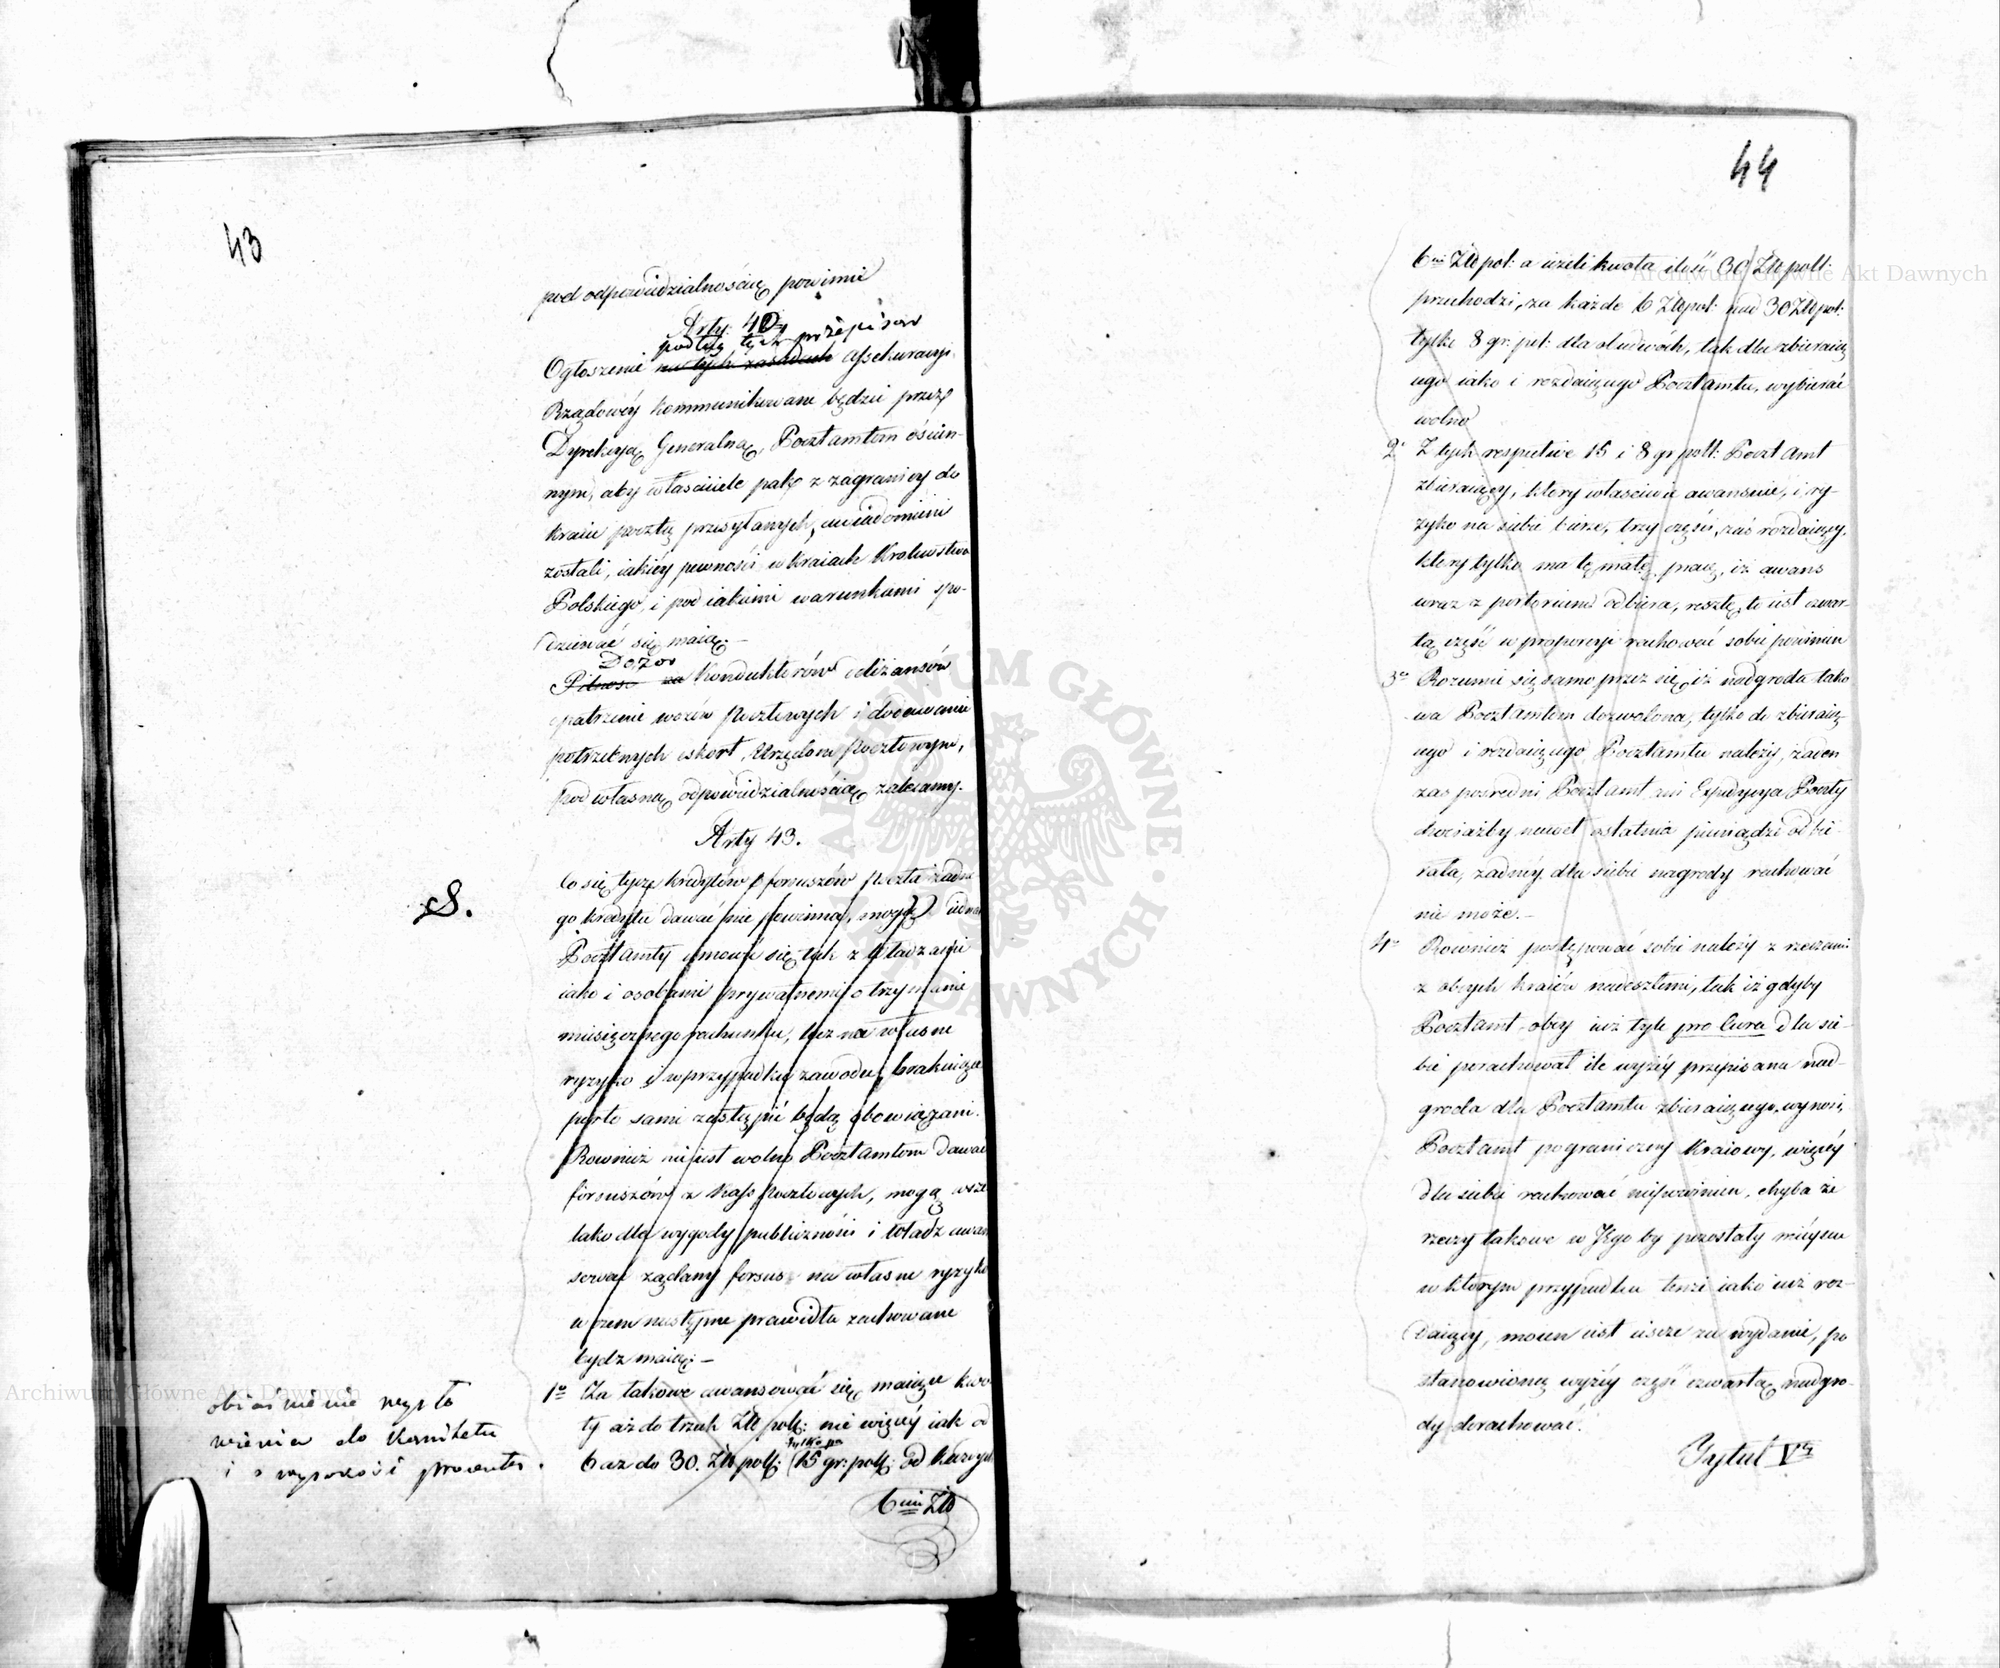 43
pod odpowiedzialnością powinie
Arty. 42
podług tych przepisow
Ogłoszenie na tych zasadach assekuracyi
Rządowéy kommunikowane będzie przez
Dyrekcyą Generalną, Pocztamtom ościen-
nym, aby właściciele pak z zagranicy do
kraiu pocztą przesyłanych, uwiadomieni
zostali, iakiéy pewności w kraiach Krolewstwa
Polskiego, i pod iakiemi warunkami spo-
dziewać się maią.—
Dozor
Pilność za Konduktorów i diliżansów
opatrzenie wozów pocztowych i dodawanie
potrzebnych eskort, Urzędom pocztowym,
pod własną odpowiedzialnością zalecamy.
Arty 43.
S.
Co się tycze kredytów i forszusów poczta żadne-
go kredytu dawać nie powinna, mogą iednak
Pocztamty umowić się tak z Władzami
iako i osobami prywatnemi o trzymanie
miesięcznego rachunku, lecz na własne
ryzyko i w przypadku zawodu, brakuiące
porto sami zastąpić będą obowiązani.
Rownież nie iest wolno Pocztamtom dawać
forszusów z Kass pocztowych, mogą wsze
lako dla wygody publiczności i Władz awan
sować żądany forszus na własne ryzyko
w czem następne prawidła zachowane
bydz maią:—
1o Za takowe awansować się maiące kwo
ty aż do trzech Złł polł: nie więcéy iak od
tylko po
6 aż do 30. Złł polł: 15 gr: polł: od każdych
6ciu Złł
obiaśnienie wysła
wienia do Komitetu
i o wysokość procentu.
44
6ciu Złł pol: a ieżeli kwota ilość 30 Złł poll:
przechodzi, za każde 6 Złł pol: nad 30 Złł pol:
tylko 8 gr. pol: dla obudwóch, tak dla zbieraią
cego iako i rozdaiącego Pocztamtu, wybierać
wolno
2o Z tych respective 15 i 8 gr poll: Poczt Amt
zbieraiący, ktory właściwie awansuie, i ry-
zyko na siebie bierze, trzy części, zaś rozdaiący,
ktory tylko ma tę małą pracę, iż awans
wraz z portorium odbiera, resztę to iest czwar-
tą część w proporcyi rachować sobie powinien
3o Rozumie się samo przez się, iż nadgroda tako
wa Pocztamtom dozwolona, tylko do zbieraią
cego i rozdaiącego Pocztamtu należy, żaden
zaś pośredni Poczt amt ani Expedycya Poczty
chociażby nawet ostatnia pieniądze odbie-
rała, żadnéy dla siebie nagrody rachować
nie może.—
4o Rownież postępować sobie należy z rzeczami
z obcych kraiów nadeszłemi, tak iż gdyby
Pocztamt obcy iuż tyle pro Cura dla sie-
bie porachował ile wyżéy przepisana nad-
groda dla Pocztamtu zbieraiącego, wynosi,
Pocztamt pograniczny Kraiowy, więcéy
dla siebie rachować nie powinien, chyba że
rzeczy takowe w Jego by pozostały mieyscu
w ktorym przypadku tenże iako iuż roz-
daiący, mocen iest ieszcze za wydanie, po
stanowioną wyżéy część czwartą nadgro-
dy dorachować.
Tytuł Vty
Archiwum Główne Akt Dawnych
Archiwum Główne Akt Dawnych
ARCHIWUM GŁÓWNE · AKT DAWNYCH ·